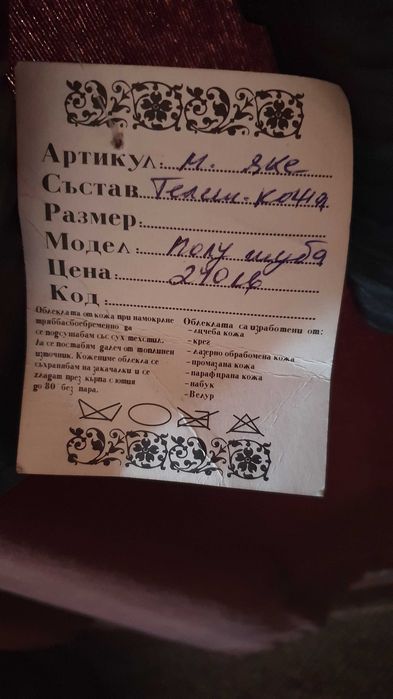 Артикул: м. яке
Състав Телеш. кожа
Размер:
Модел: полу шуба
Цена: 240 лв
Код:
Облеклата от кожа при намокряне
трябвасвоевременно да
се подсушавам със сух текстил.
Да се поставям далеч от топлинен
източник. Кожените облекла се
съхраняват на закачалки и се
гладят през кърпа с ютия
до 80 без пара.
Облеклата са изработени от:
-лицева кожа
-крез
-лазерно обработена кожа
-промазана кожа
-парафирана кожа
-набук
-Велур